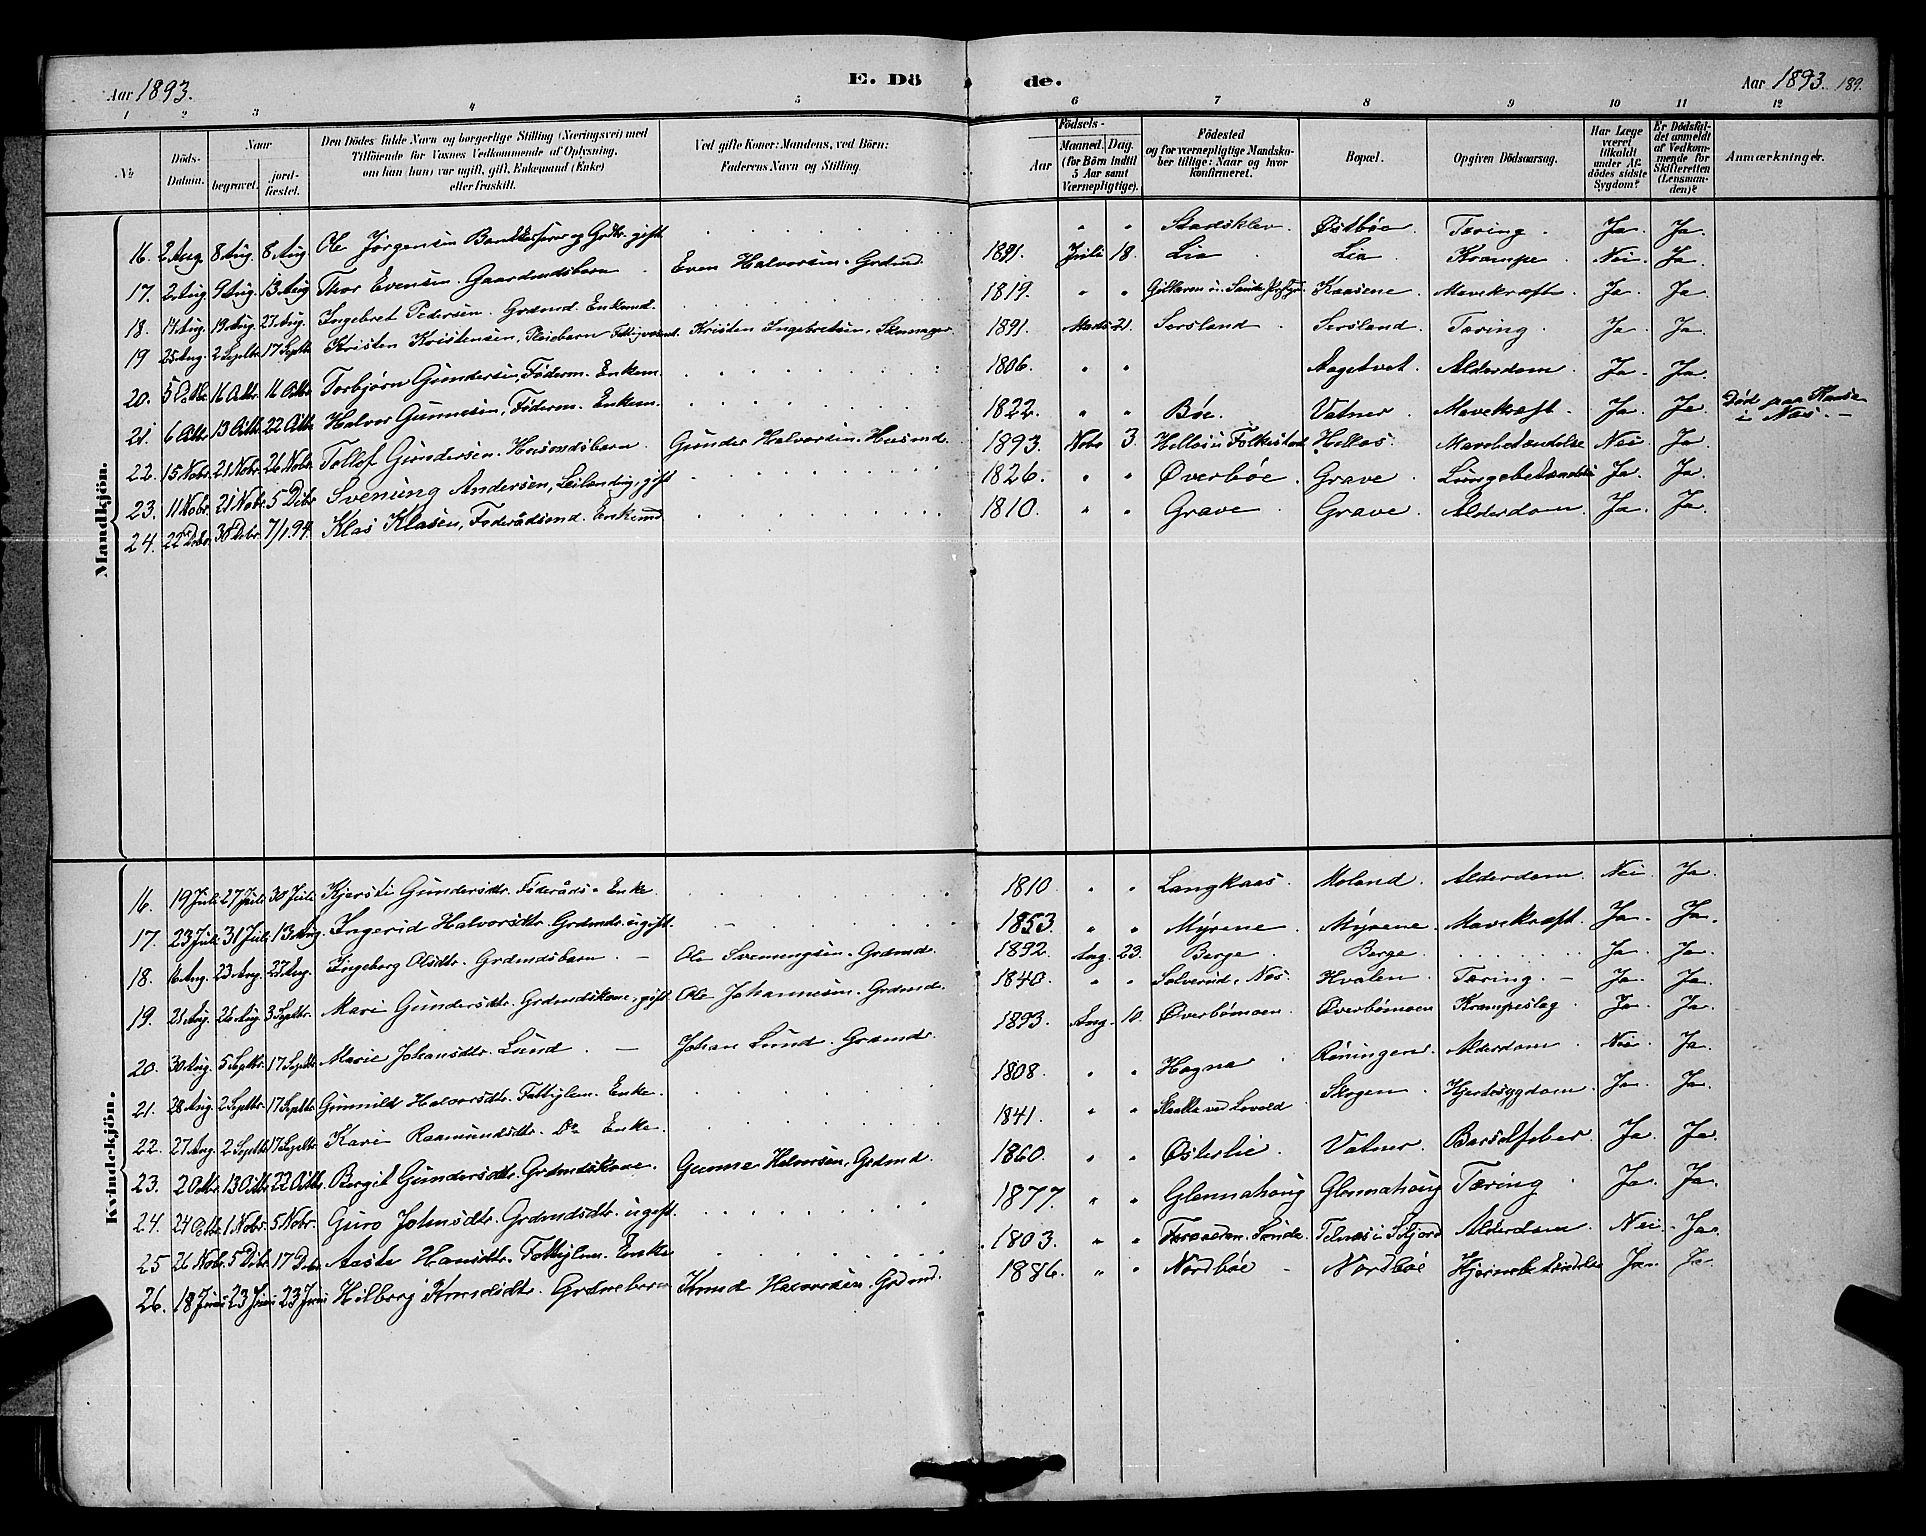 Aar 1893. E. Dö de. Aar 1893. 189.
1 2 3 4 5 6 7 8 9 10 11 12
No Döds-Datum. Naar begravet. jordfæstet. Den Dödes fulde Navn og borgerlige Stilling (Næringsvei) med Tilföiende for Voxnes Vedkommende af Oplysning, om han (hun) var ugift, gift, Enkemand (Enke) eller fraskilt. Ved gifte Koner: Mandens, ved Börn: Faderens Navn og Stilling. Födsels- Aar Maaned. Dag. (for Börn indtil 5 Aar samt Værnepligtige). Födested og for værnepligtige Mandskaber tillige: Naar og hvor konfirmeret. Bopæl. Opgiven Dödsaarsag. Har Læge været tilkaldt under Afdödes sidste Sygdom? Er Dödsfaldet anmeldt af Vedkommende for Skifteretten (Lensmanden)? Anmærkninger.
Mandkjön.
16. 2 Aug. 8 Aug. 8 Aug. Ole Jörgensen gift " " Stadsklev Østbøe. Tæring. Ja. Ja.
17. 2 Aug. 9 Aug. 13 Aug. Thor Evensen. Gaardmdsbarn Even Halvorsen. Grdmd. 1891. Juli 18. Lia Lia Krampe. Nei. Ja.
18. 14 Aug. 19 Aug. 27 Aug. Ingebret Pedersen. Grdmd. Enkemd. 1819. " " Kaasene. Mavekræft. Ja. Ja.
19 25 Aug. 2 Septbr. 17 Septbr Kristen Kristensen, Pleiebarn Kristen Ingebretsen. Skomager. 1891. Marts 21. Sørsland. Sørsland. Tæring. Ja. Ja.
20. 5 Octbr. 16 Octbr. 16 Octbr. Torbjørn Gundersen, Föderm. Enkem. 1806. " " Aagetvet. Alderdom. Ja. Ja.
21. 6 Octbr. 13 Octbr. 22 Octbr. Halvor Gunnesen, Föderm. Enkem. 1822. " " Bøe. Vatner. Mavekræft. Ja. Ja. Død paa i Næs.
22. 15 Nobr. 21 Nobr. 26 Nobr. Tollef Gundersen. Husmdsbarn. Gunder Halvorsen. Husmd. 1893. Nobr 3. Hellos i Folkestad. Hellos. Mavebetændelse Nei. Ja.
23. 11 Nobr. 21 Nobr. 5 Debr. Svenung Andersen, Leilending, gift 1826. " " Øverbøe. Grave. Lungebetændelse Ja. Ja.
24. 22 Debr. 30 Debr. 7/1 94. Klas Klasen, Föderådsmd. Enkemd. 1810. " " Grave. Grave. Alderdom. Ja. Ja.
Kvindekjön.
16. 19 Juli 27 Juli 30 Juli Kjersti Gundersdtr. Föderåds-Enke. 1810. " " Langkaas. Moland. Alderdom. Nei. Ja.
17. 23 Juli 31 Juli 13 Aug. Ingerid Halvorsdtr. Grdmdr. ugift. 1853. " " Myrene. Myrene. Mavekræft. Ja. Ja.
18. 16 Aug. 23 Aug. 27 Aug. Ingeborg Olsdtr. Grdmdsbarn. Ole Svenungsen. Grdmd. 1892. Aug. 23. Berge. Berge. Ja. Ja.
19. 21 Aug. 26 Aug. 3 Septbr. Mari Gundersdtr. Grdmdskone, gift Ole Johannesen. Grdmd. 1840. " " Solverud i Næs. Hvalen. Tæring. Ja. Ja.
20. 30 Aug. 5 Septbr. 17 Septbr. Marie Johansdtr. Lund. Johan Lund. Grdmd. 1893. Aug. 10. Øverbømoen. Øverbømoen Krampeslag. Ja. Ja.
21. 28 Aug. 2 Septbr. 17 Septbr. Gunnild Halvorsdtr. Fattiglem. Enke. 1808. " " Hagna Røningen. Alderdom. Nei. Ja.
22. 27 Aug. 2 Septbr. 17 Septbr. Kari Raamundsdtr. Do Enke. 1841. " " ved Lovold Skogen. Hjertesygdom. Ja. Ja.
23. 2 Octbr. 13 Octbr. 22 Octbr. Bergit Gundersdtr. Grdmdskone. Gunne Halvorsen, Grdmd. 1860. " " Østerlie. Vatner. Barselfeber. Ja. Ja.
24. 24 Octbr. 1 Nobr. 5 Nobr. Guro Johnsdtr. Grdmdsdtr. ugift. 1877. " " Glennahaug Glennahaug Tæring. Ja. Ja.
25 26 Nobr. 5 Debr. 17 Debr Aaste Hansdtr. Fattiglem. Enke 1803. " " Alderdom. Nei. Ja.
26. 18 Juni 23 Juni 23 Juni Hilborg Knudsdtr. Knud Halvorsen. Grdmd. 1886. " " Nordbøe Nordbøe Hjernebetændelse Ja. Ja.